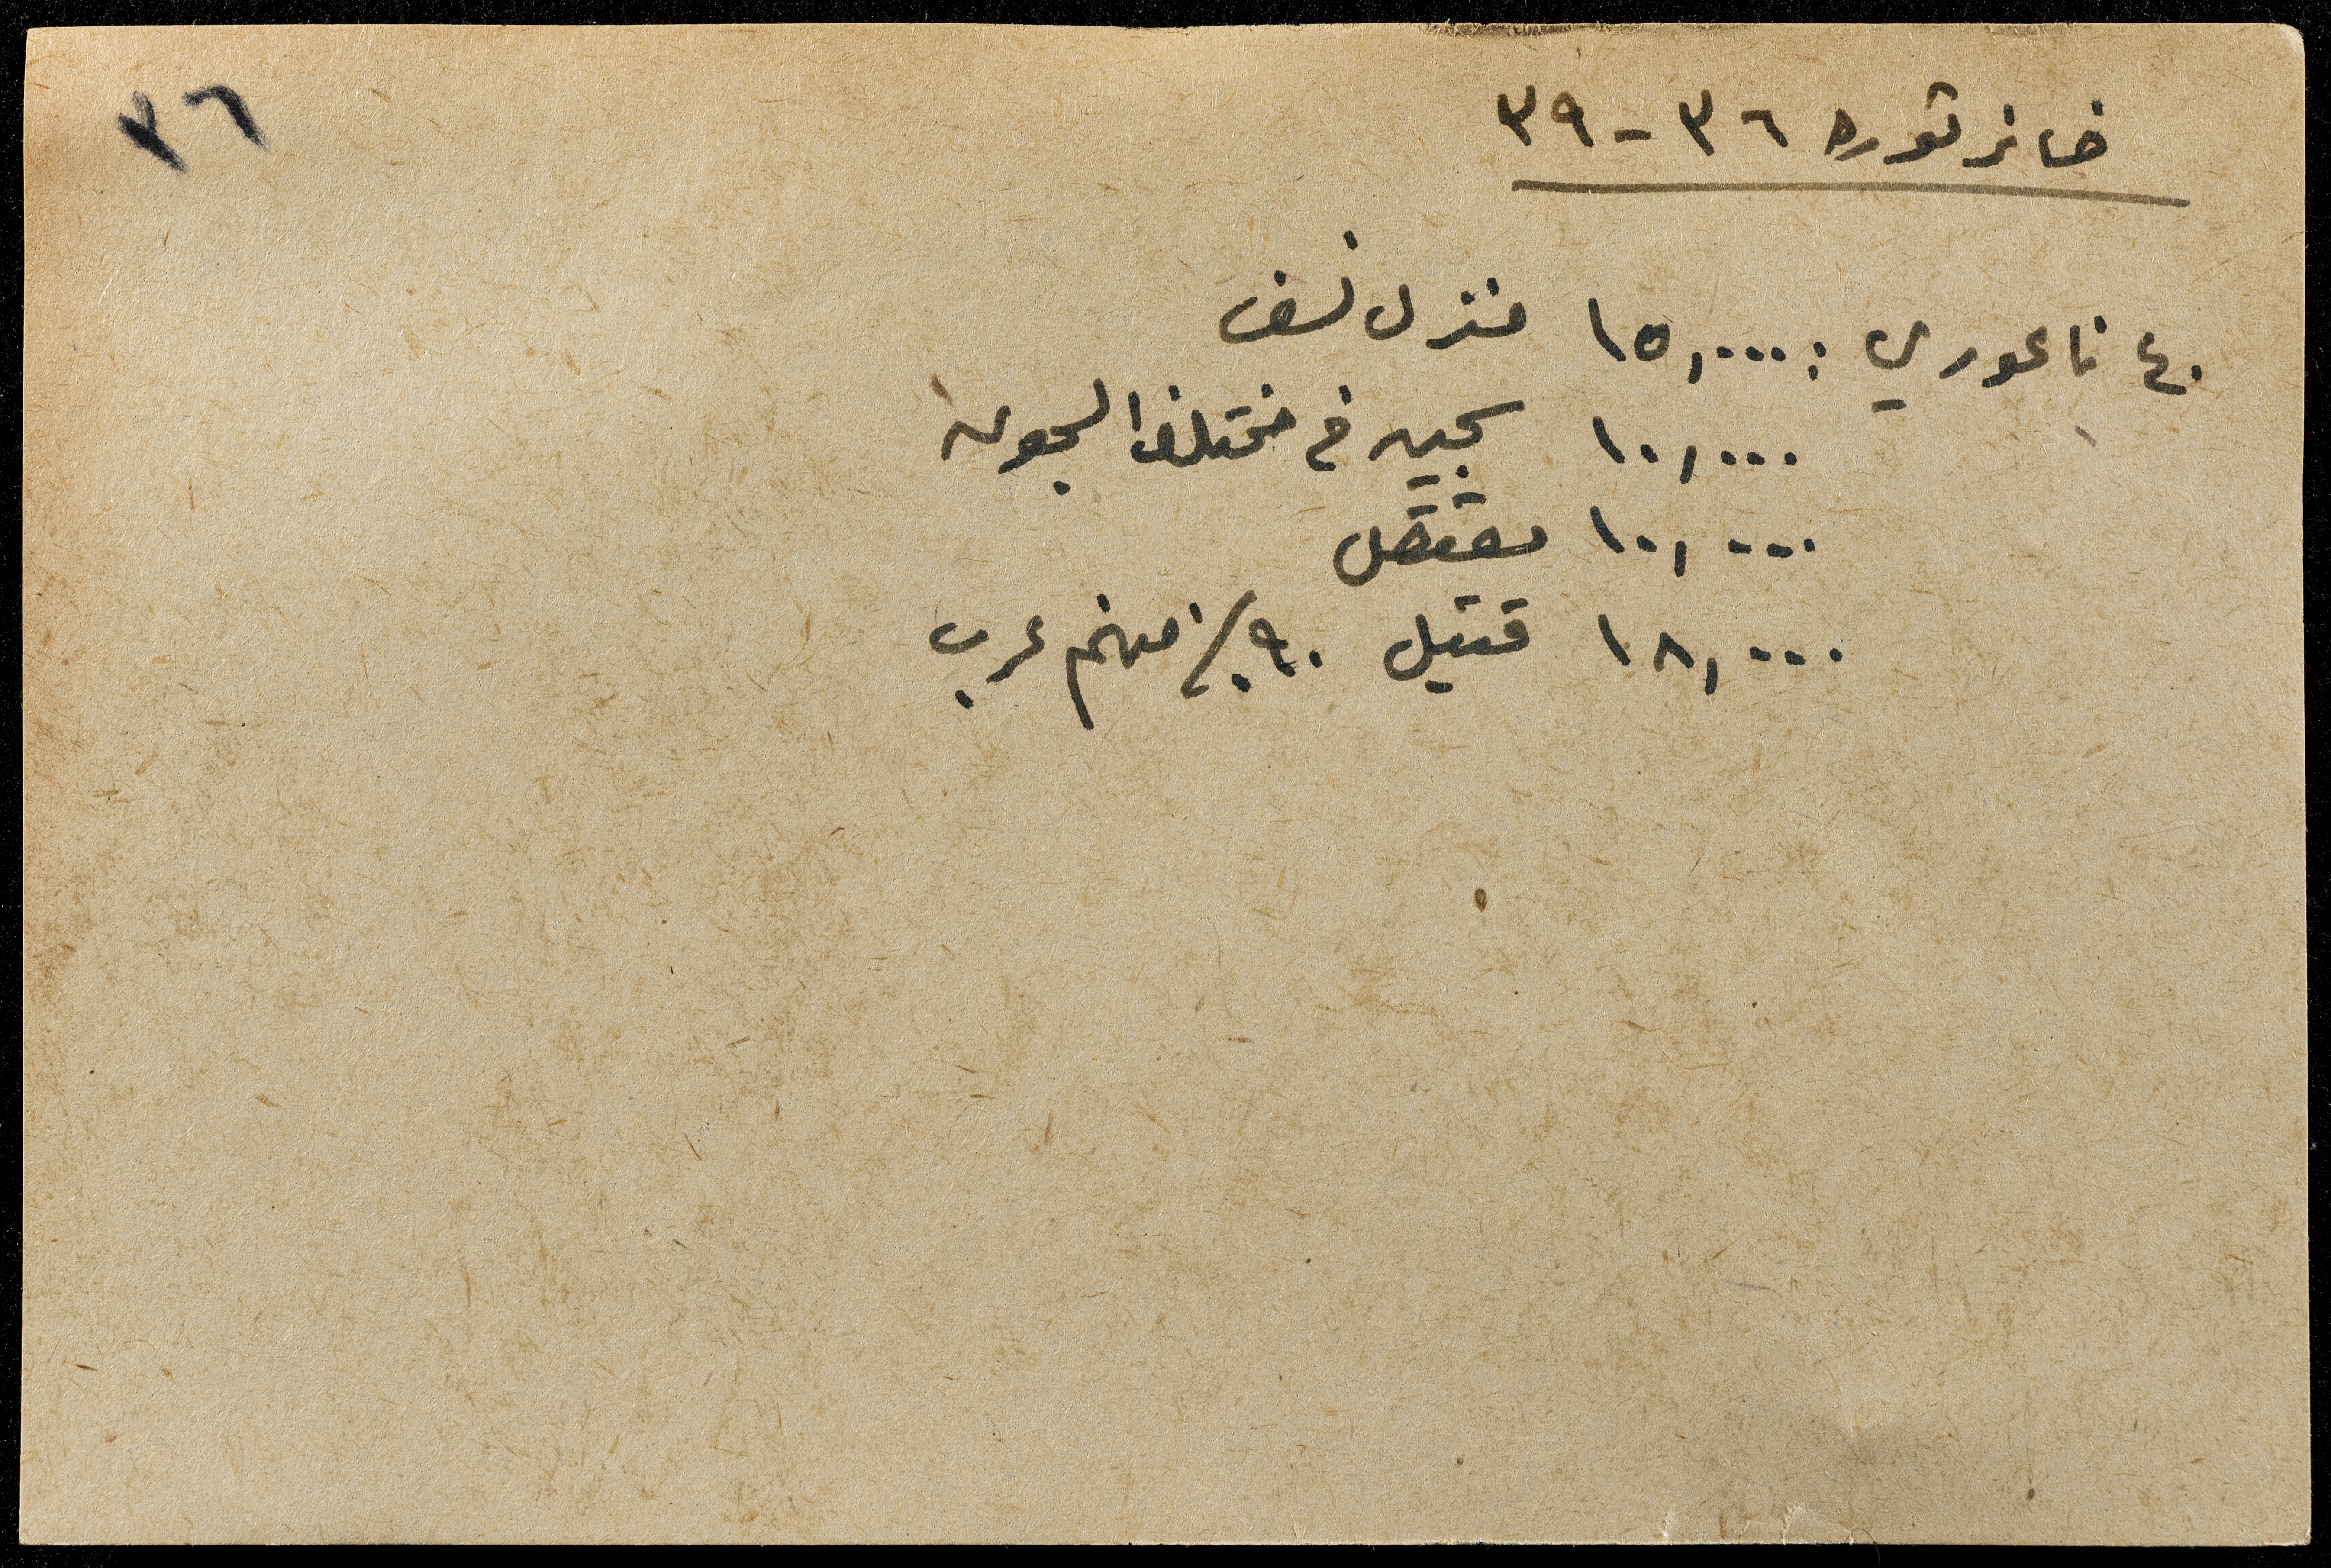 ٣٦
خسائر ثورة ٣٦ - ٣٩
٤٠ ناعوري : ١٥,٠٠٠ منزل نسف
١٠,٠٠٠ سجين في مختلف السجون
١٠,٠٠٠ معتقل
١٨,٠٠٠ قتيل ٩٠٪ منهم عرب